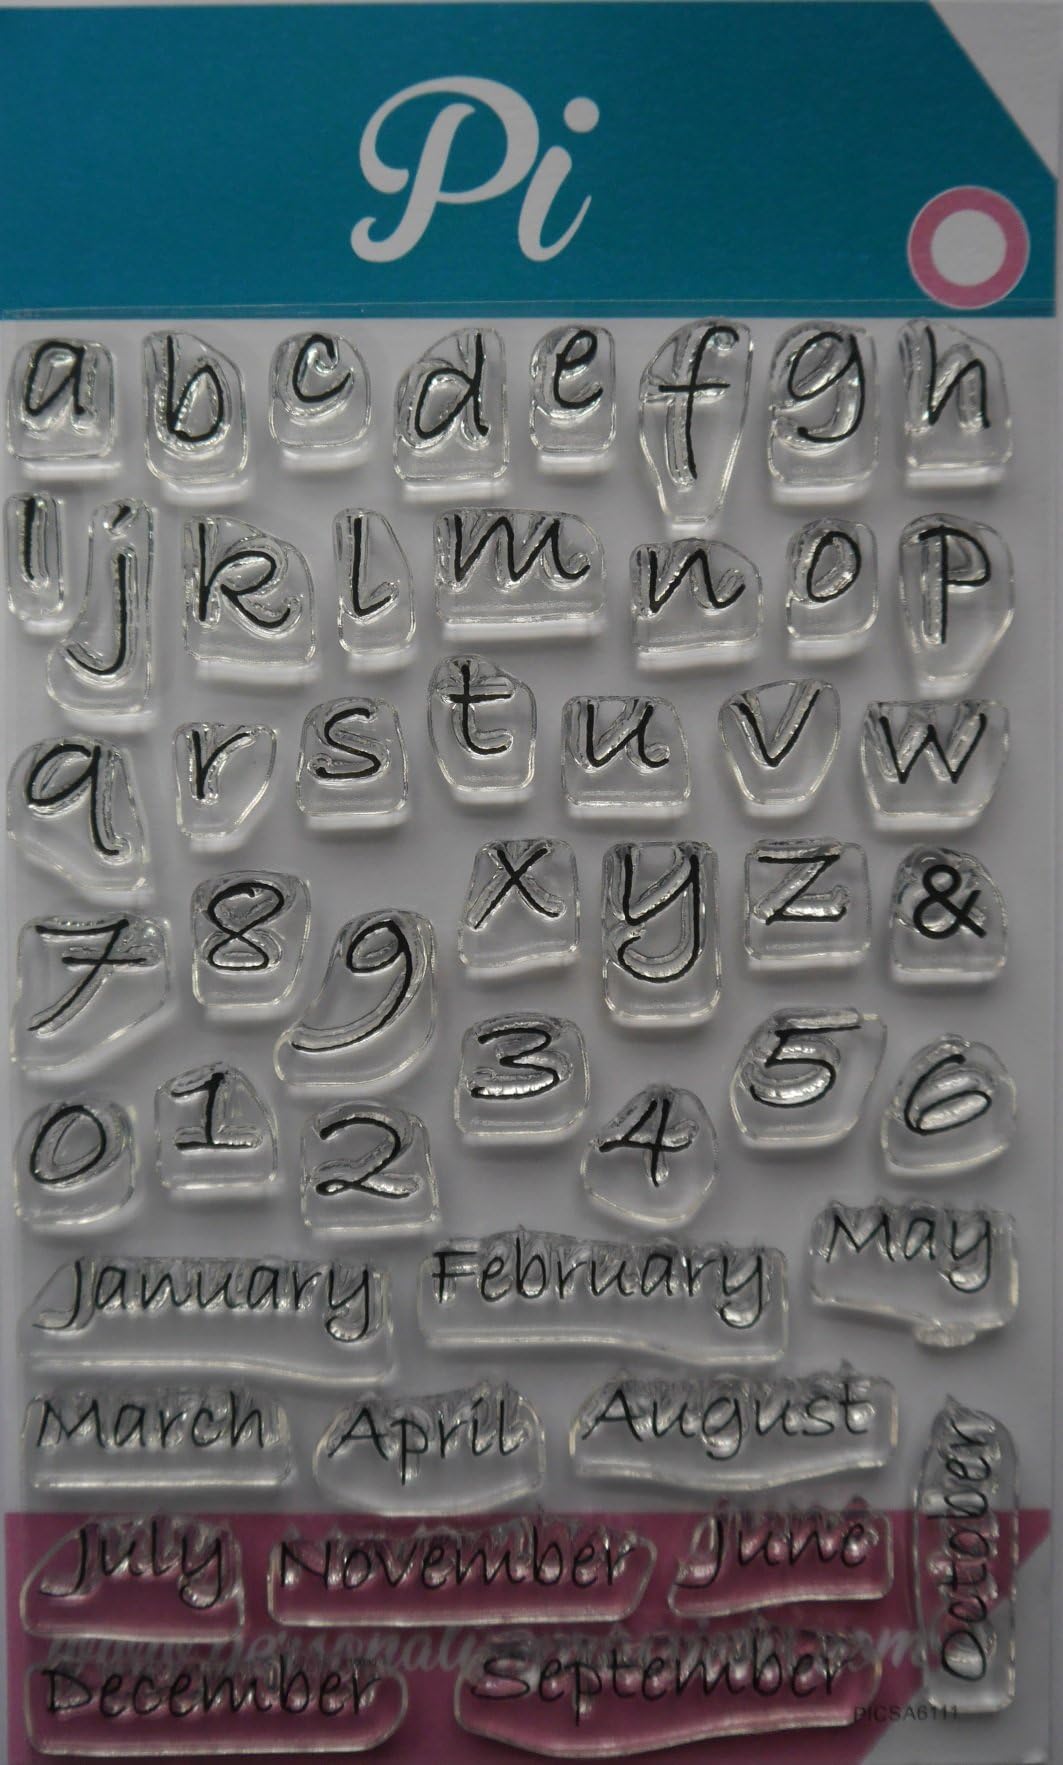 Pi
a b c d e f g h
i j k l m n o p
q r s t u v w
x y z &
7 8 9
3 5 6
0 1 2 4
January February May
March April August
October
July November June
December September
PICSA6111